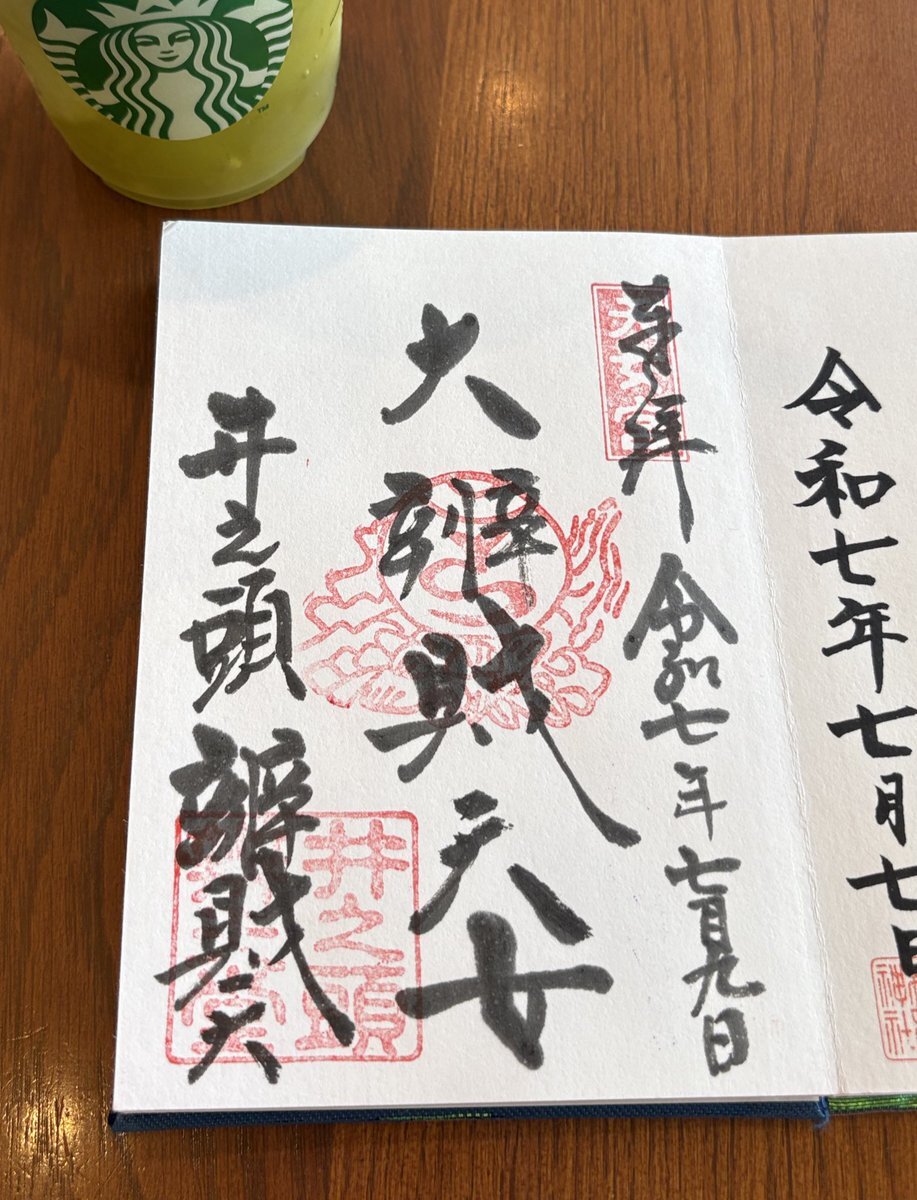 令和七年七月七日
神社
奉拝
令和七年七月九日
大辨財天女
井之頭
辨財天
井之頭
堂
TM